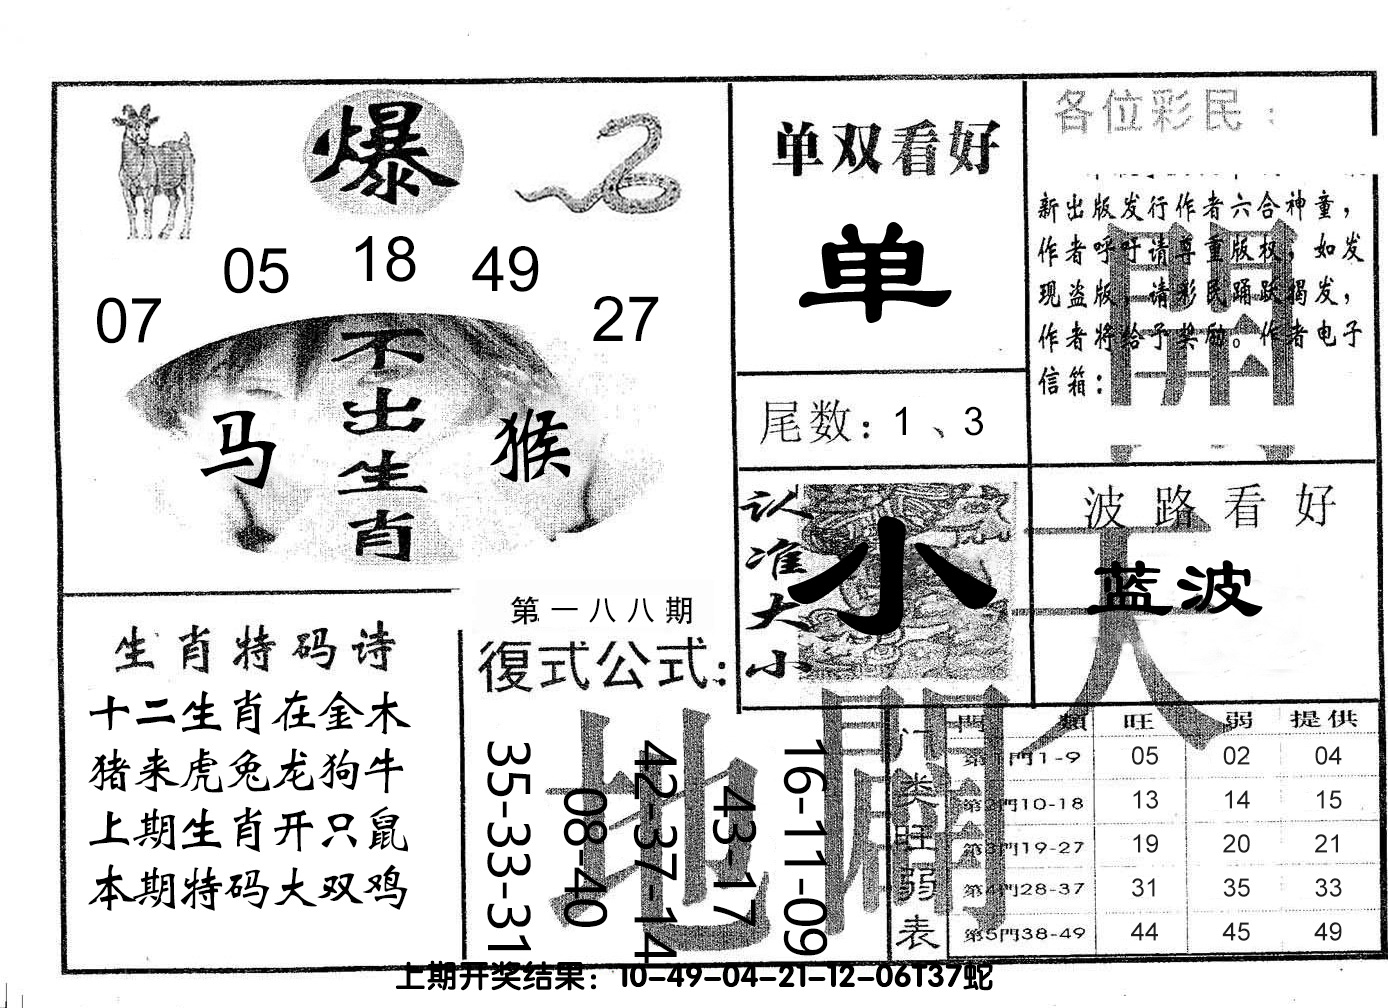 爆
07
05
18
49
27
不出生肖
马
猴
单双看好
单
尾数：1、3
各位彩民：
新出版发行作者六合神童，
作者呼吁请尊重版权，如发
现盗版，请彩民踊跃揭发，
作者将给予奖励。作者电子
信箱：
開
认准大小
小
波路看好
蓝波
天
生肖特码诗
十二生肖在金木
猪来虎兔龙狗牛
上期生肖开只鼠
本期特码大双鸡
第一八八期
復式公式：
35-33-31
08-40
42-37-14
43-17
16-11-09
地
门类旺弱表
門 類 旺 弱 提供
第1門1-9 05 02 04
第2門10-18 13 14 15
第3門19-27 19 20 21
第4門28-37 31 35 33
第5門38-49 44 45 49
上期开奖结果：10-49-04-21-12-06T37蛇